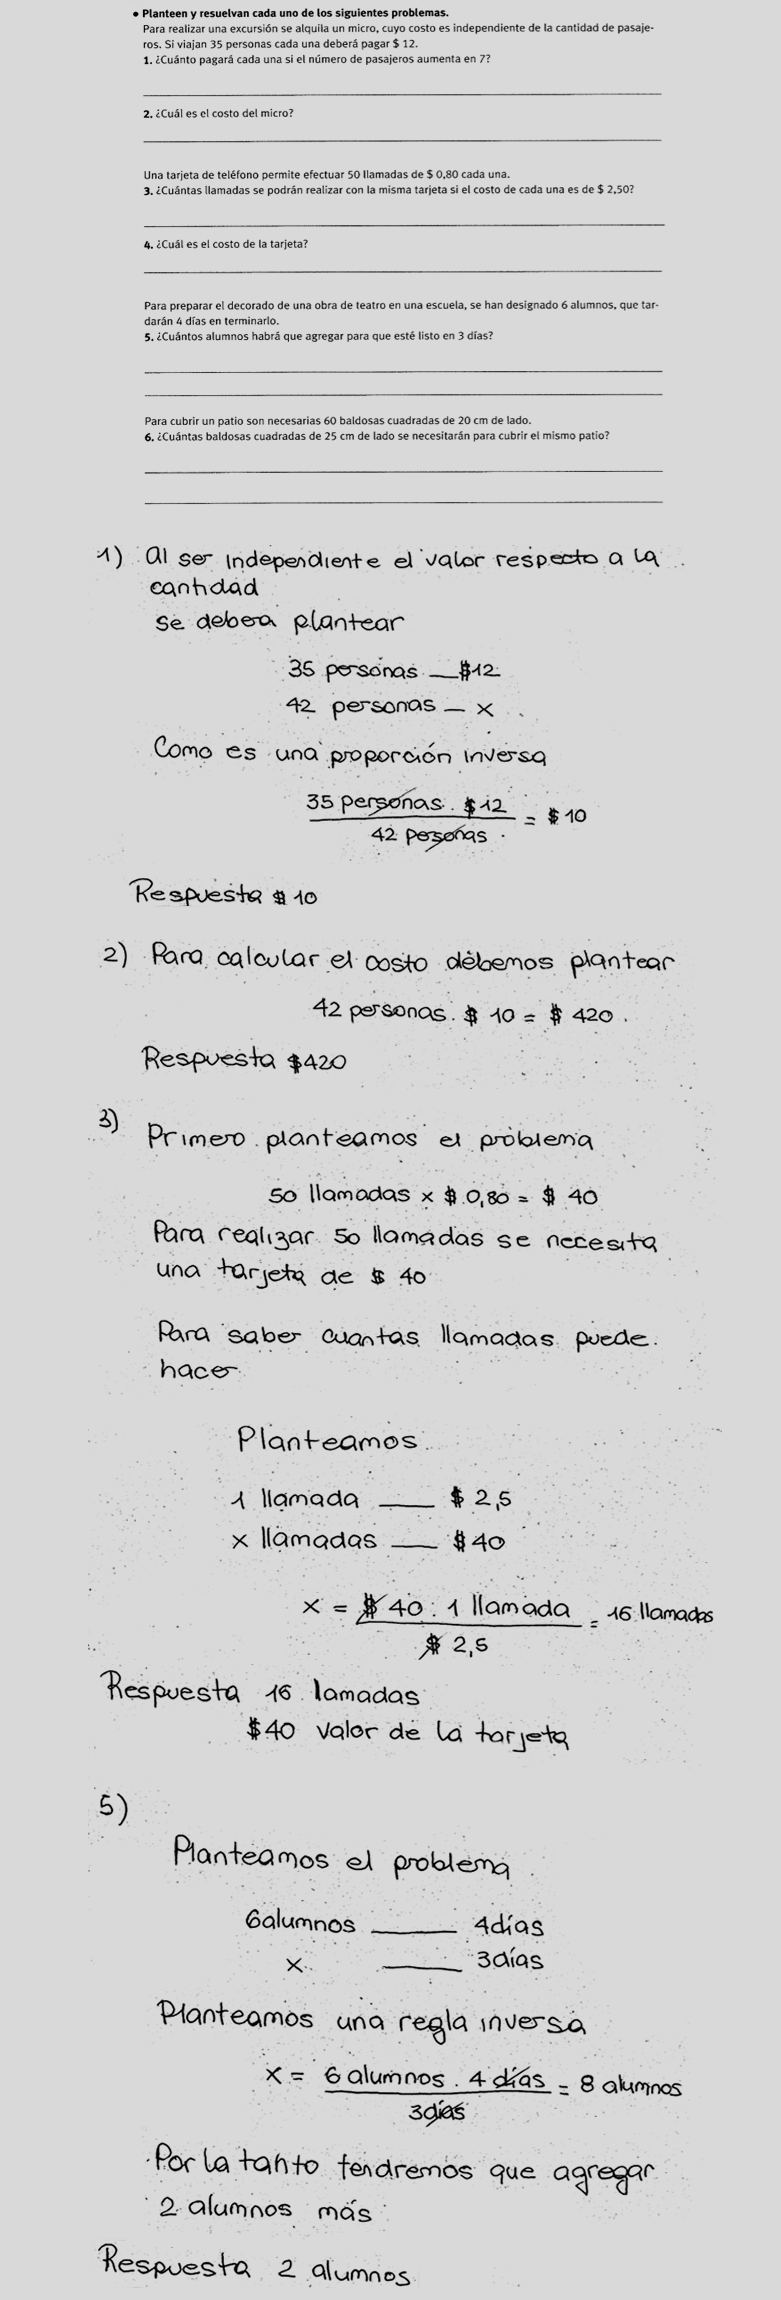 • Planteen y resuelvan cada uno de los siguientes problemas.
Para realizar una excursión se alquila un micro, cuyo costo es independiente de la cantidad de pasaje-
ros. Si viajan 35 personas cada una deberá pagar $ 12.
1. ¿Cuánto pagará cada una si el número de pasajeros aumenta en 7?
2. ¿Cuál es el costo del micro?
Una tarjeta de teléfono permite efectuar 50 llamadas de $ 0,80 cada una.
3. ¿Cuántas llamadas se podrán realizar con la misma tarjeta si el costo de cada una es de $ 2,50?
4. ¿Cuál es el costo de la tarjeta?
Para preparar el decorado de una obra de teatro en una escuela, se han designado 6 alumnos, que tar-
darán 4 días en terminarlo.
5. ¿Cuántos alumnos habrá que agregar para que esté listo en 3 días?
Para cubrir un patio son necesarias 60 baldosas cuadradas de 20 cm de lado.
6. ¿Cuántas baldosas cuadradas de 25 cm de lado se necesitarán para cubrir el mismo patio?
1) Al ser independiente el valor respecto a la
cantidad
se debera plantear
35 personas — $12
42 personas — x
Como es una proporción inversa
35 personas . $12 = $ 10
42 pesonas
Respuesta $ 10
2) Para calcular el costo debemos plantear
42 personas . $ 10 = $ 420
Respuesta $420
3) Primero planteamos el problema
50 llamadas x $ 0,80 = $ 40
Para realizar 50 llamadas se necesita
una tarjeta de $ 40
Para saber cuantas llamadas puede
hacer
Planteamos
1 llamada — $ 2,5
x llamadas — $40
x = $ 40 . 1 llamada = 16 llamadas
$ 2,5
Respuesta 16 lamadas
$40 valor de la tarjeta
5)
Planteamos el problema
6 alumnos — 4 días
x — 3 días
Planteamos una regla inversa
x = 6 alumnos . 4 días = 8 alumnos
3 días
Por la tanto tendremos que agregar
2 alumnos más
Respuesta 2 alumnos